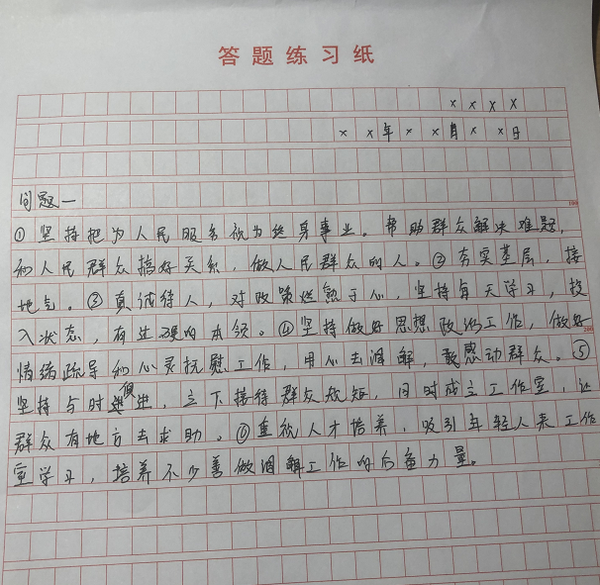 答题练习纸
××××
××年××月××日
问题一
①坚持把为人民服务视为终身事业。帮助群众解决难题,
和人民群众搞好关系,做人民群众的人。②夯实基层,接
地气。③真诚待人,对政策烂熟于心,坚持每天学习,投
入状态,有过硬的本领。④坚持做好思想政治工作,做好
情绪疏导和心灵抚慰工作,用心去调解,感动群众。⑤
坚持与时俱进,立下接待群众规矩,同时成立工作室,让
群众有地方去求助。⑥重视人才培养,吸引年轻人来工作
室学习,培养不少善做调解工作的后备力量。